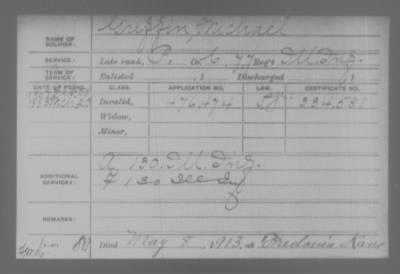 Griffin, Michael
NAME OF SOLDIER:
SERVICE: Late rank, P. Co. C, 77 Reg't Ill. Inf.
TERM OF SERVICE: Enlisted , 1 Discharged , 1
DATE OF FILING. CLASS. APPLICATION NO. LAW. CERTIFICATE NO.
1883 Invalid, 476,474 334,581
Widow,
Minor,
ADDITIONAL SERVICES: A 130. Ill. Inf.
F 130 Ill Inf
REMARKS:
Died May 8, 1913, at Fredonia Kans